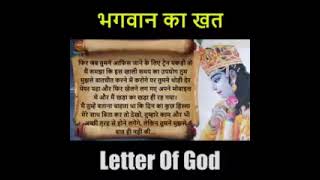 भगवान का खत
फिर जब तुमने आफिस जाने के लिए ट्रेन पकड़ी तो
मैं समझा कि इस खाली समय का उपयोग तुम
मुझसे बातचीत करने में करोगे पर तुमने थोड़ी देर
पेपर पढ़ा और फिर खेलने लग गए अपने मोबाइल
में और मैं खड़ा का खड़ा ही रह गया।
मैं तुम्हें बताना चाहता था कि दिन का कुछ हिस्सा
मेरे साथ बिता कर तो देखो, तुम्हारे काम और भी
अच्छी तरह से होने लगेंगे, लेकिन तुमने मुझसे
बात ही नहीं की...
Letter Of God